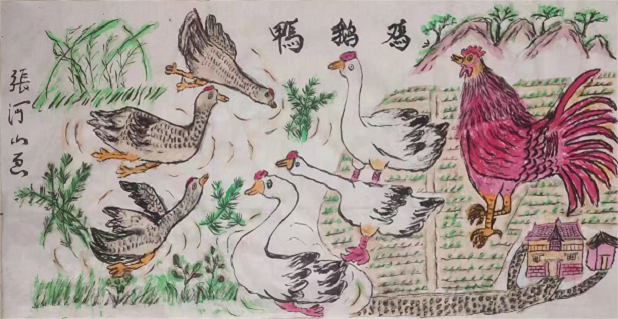 鸡 鵝 鴨
張河山画